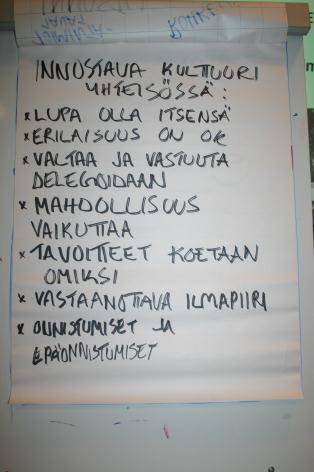 INNOSTAVA KULTTUURI
YHTEISÖSSÄ:
× LUPA OLLA ITSENSÄ
× ERILAISUUS ON OK
× VALTAA JA VASTUUTA
DELEGOIDAAN
× MAHDOLLISUUS
VAIKUTTAA
× TAVOITTEET KOETAAN
OMIKSI
× VASTAANOTTAVA ILMAPIIRI
× ONNISTUMISET JA
EPÄONNISTUMISET